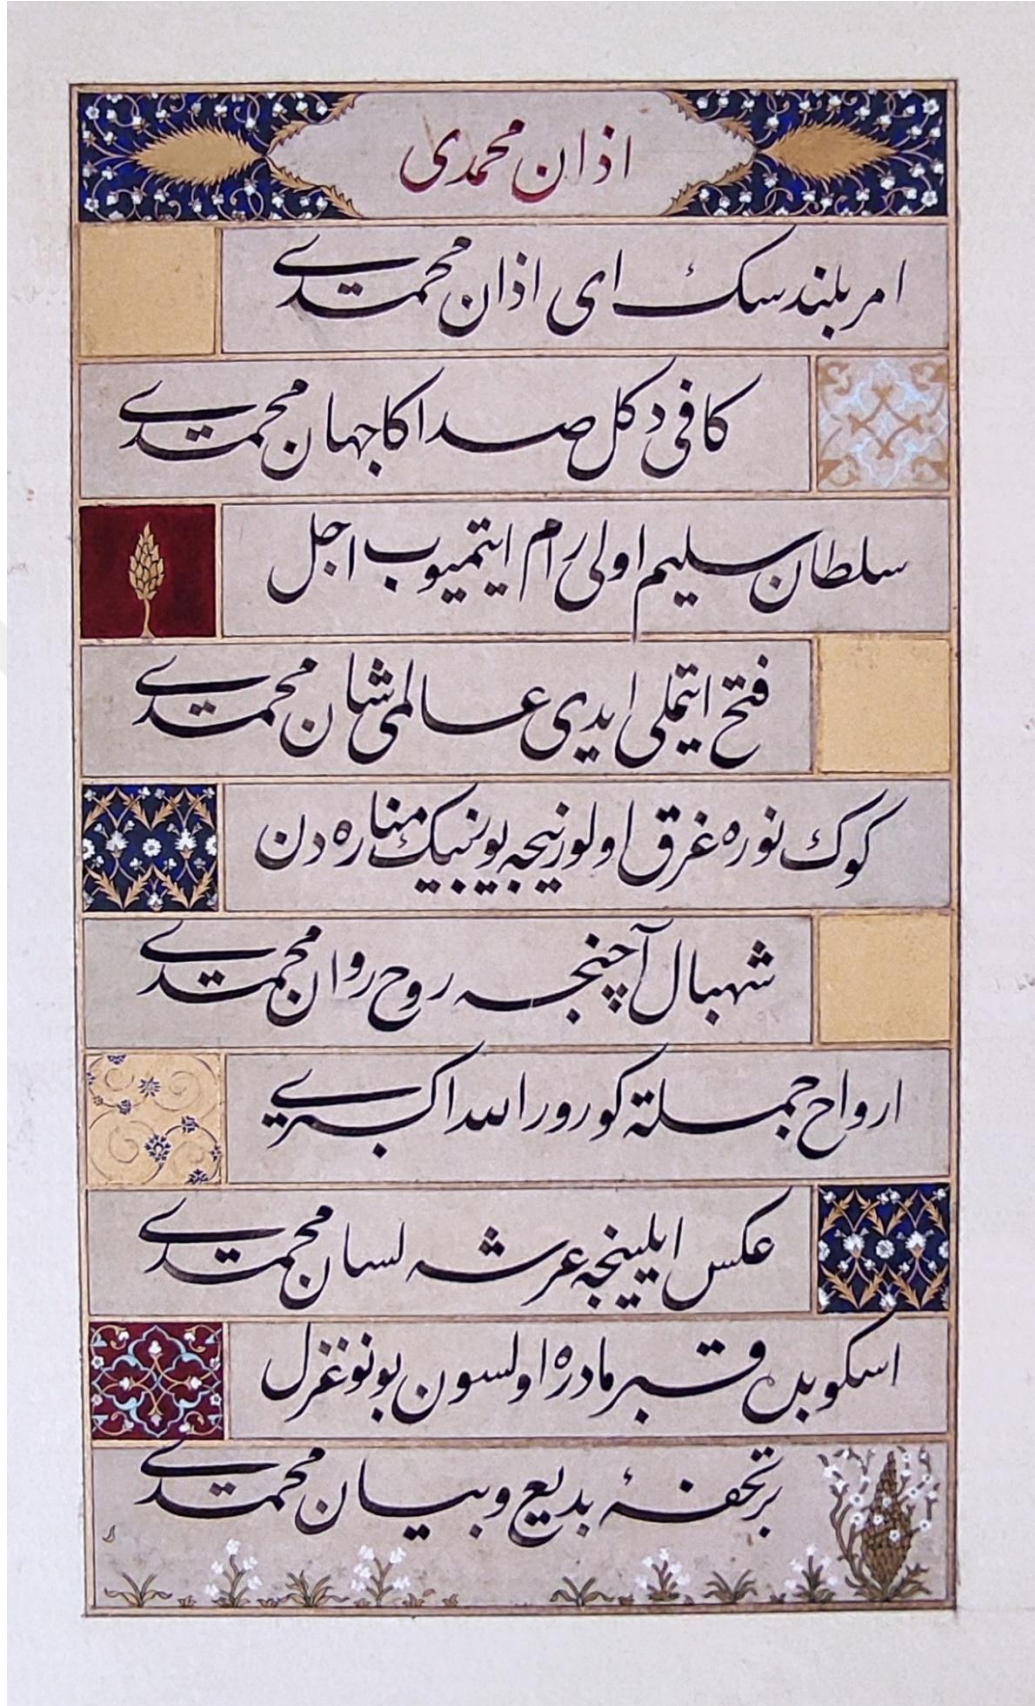 اذان محمدی
امر بلندسك ای اذان محمدی
كافی دكل صداكا جهان محمدی
سلطان سلیم اولی رام ایتمیوب اجل
فتح ایتملی ایدی عالمی شان محمدی
كوك نوره غرق اولور نیجه یوزبیك مناره دن
شهبال آچنجه روح روان محمدی
ارواح جملةً كورور الله اكبری
عكس ایلینجه عرشه لسان محمدی
اسكوبده قبر مادره اولسون بو نو غزل
بر تحفۀ بدیع و بیان محمدی